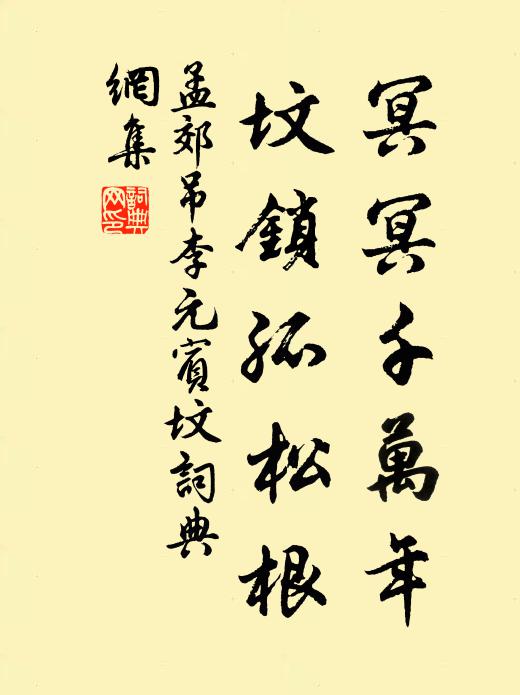 冥冥千萬年
坟鎖孤松根
孟郊吊李元賓坟詞典
網集
詞典網印